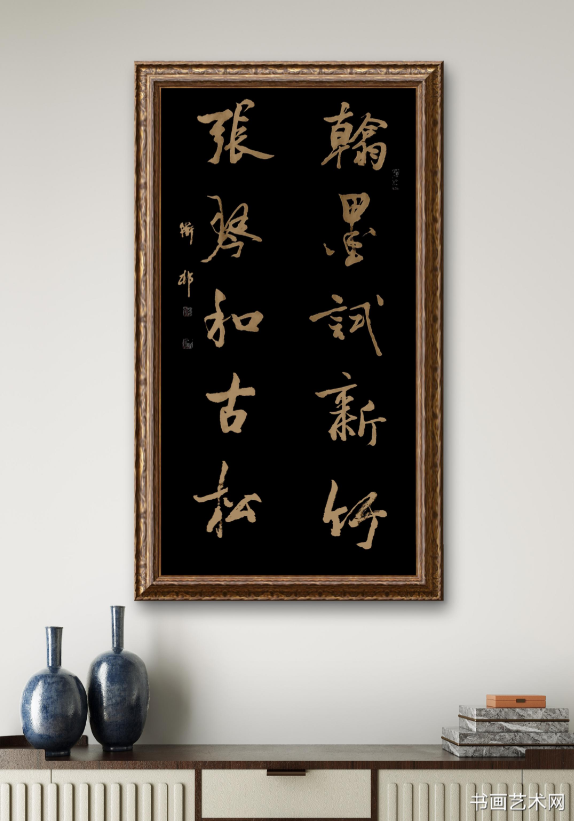 翰墨試新竹
張琴和古松
书画艺术网